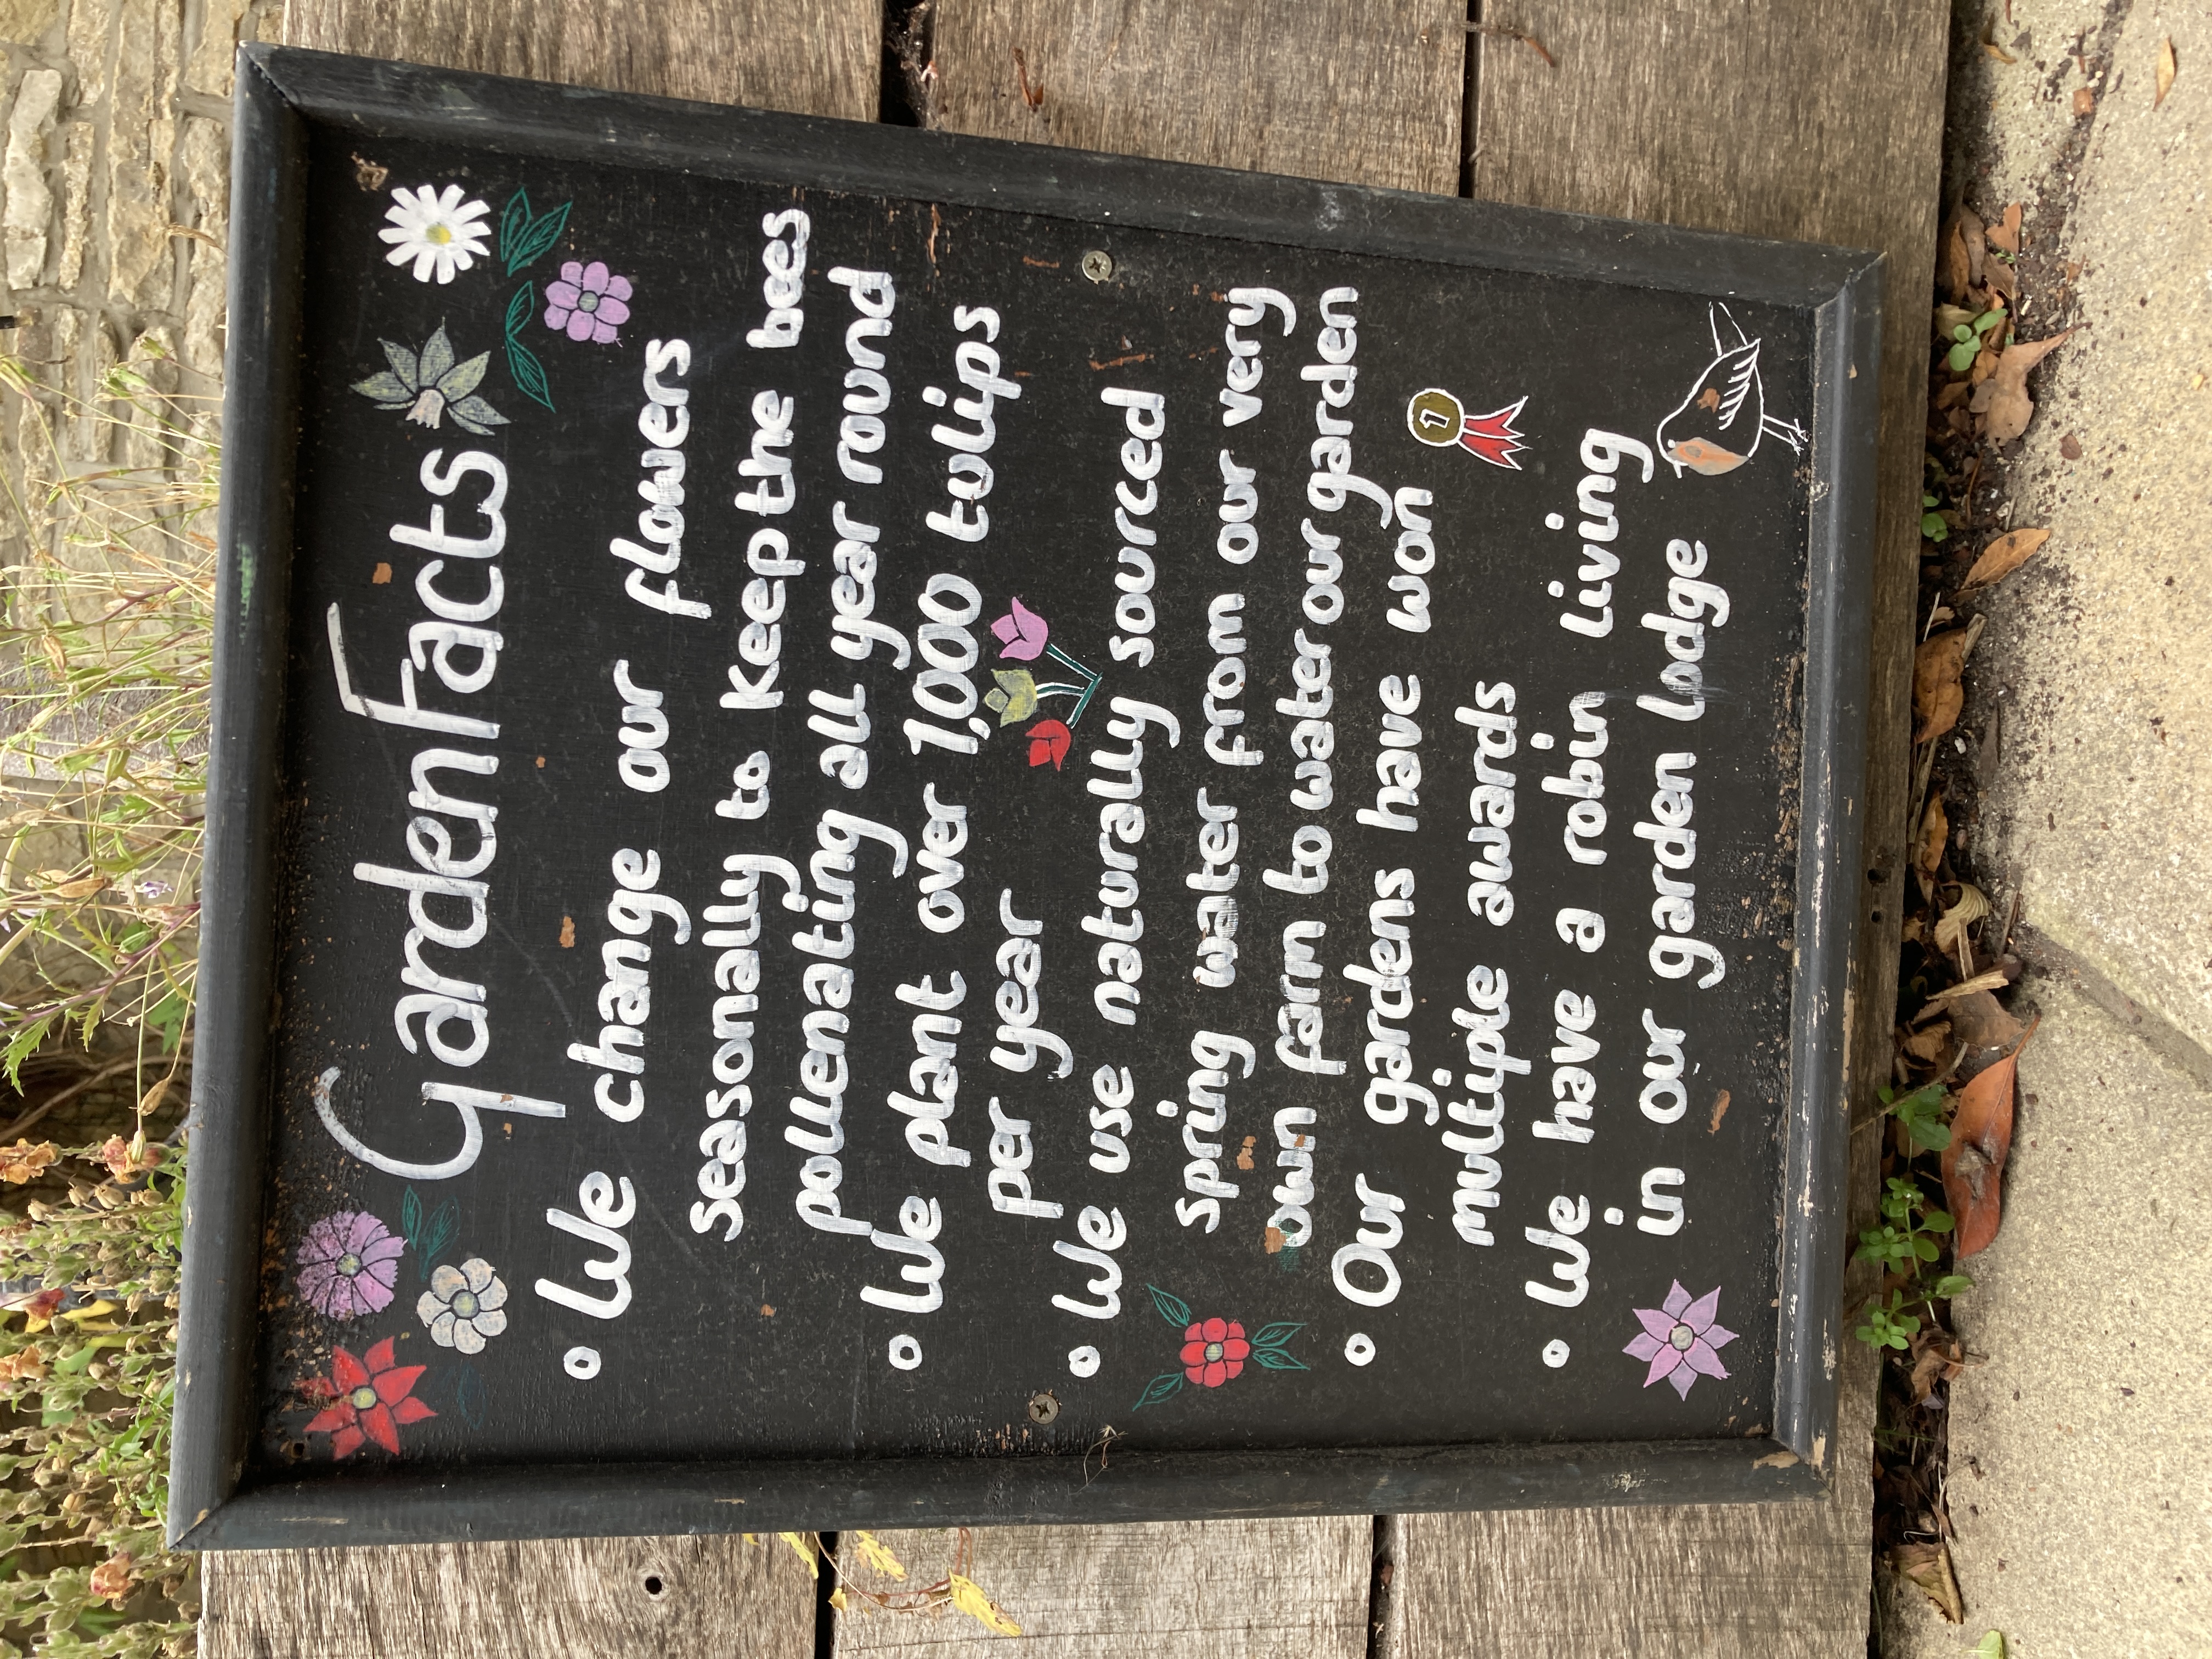 Garden Facts
• We change our flowers
seasonally to keep the bees
pollenating all year round
• We plant over 1,000 tulips
per year
• We use naturally sourced
spring water from our very
own farm to water our garden
• Our gardens have won
multiple awards
1
• We have a robin living
in our garden lodge